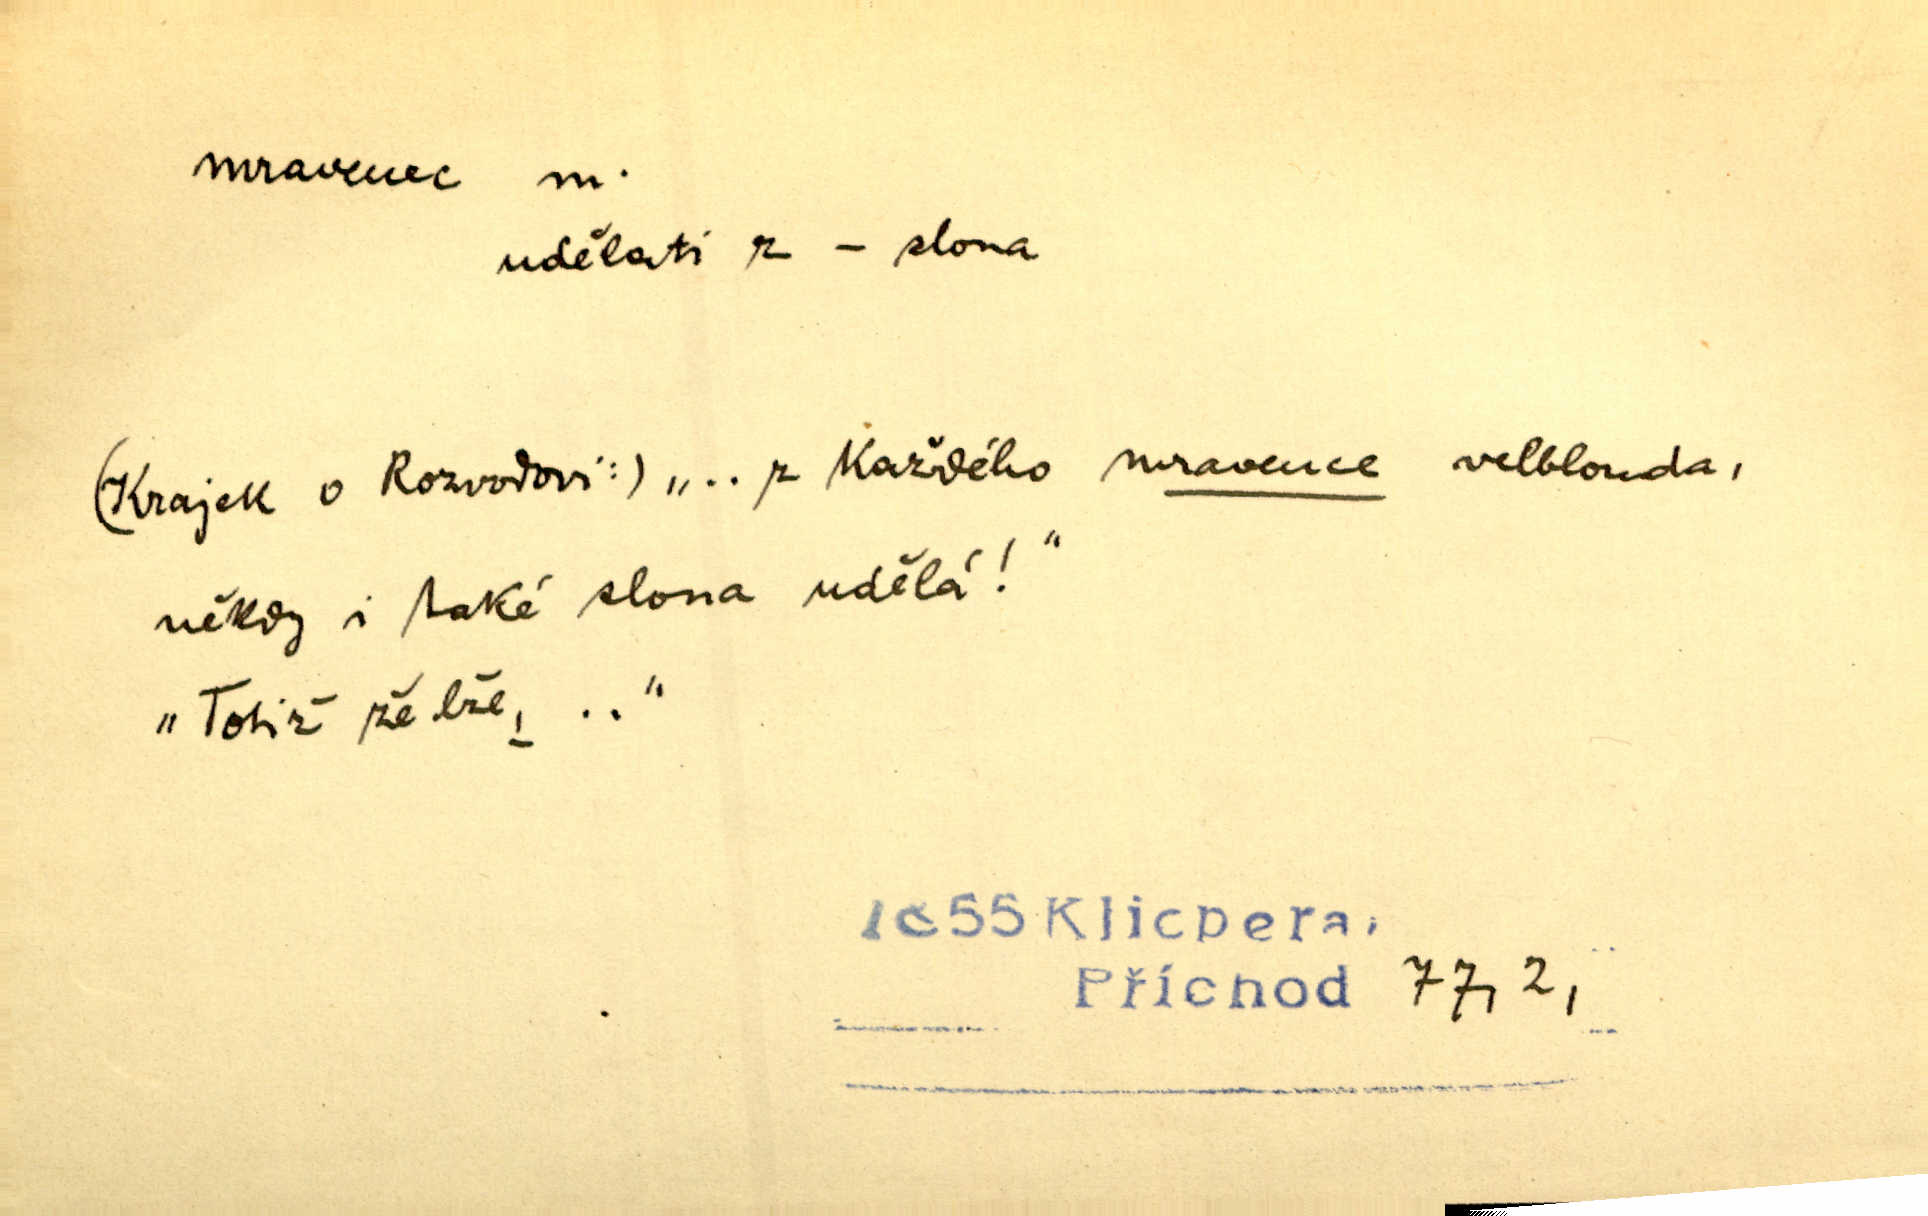 mravenec m.
udělati z – slona
(Krajek o Rozvodovi:) „.. z každého mravence velblouda,
někdy i také slona udělá!“
„Totiž že lže, ..“
1855 Klicpera,
Příchod 77, 2,